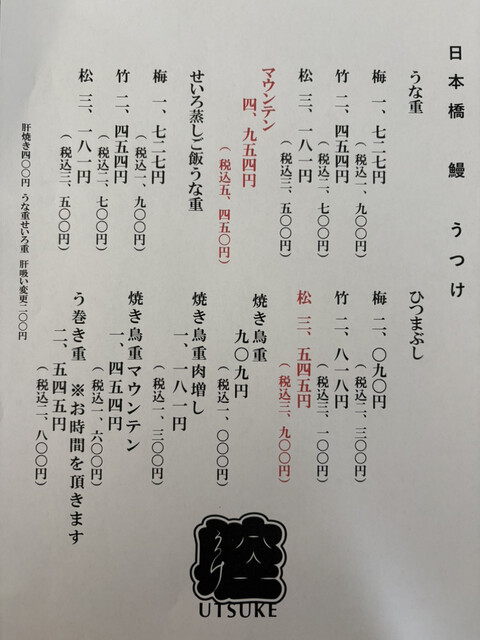 日本橋 鰻 うつけ
うな重
梅 一、七二七円
（税込一、九〇〇円）
竹 二、四五四円
（税込二、七〇〇円）
松 三、一八一円
（税込三、五〇〇円）
マウンテン
四、九五四円
（税込五、四五〇円）
せいろ蒸しご飯うな重
梅 一、七二七円
（税込一、九〇〇円）
竹 二、四五四円
（税込二、七〇〇円）
松 三、一八一円
（税込三、五〇〇円）
ひつまぶし
梅 二、〇九〇円
（税込二、三〇〇円）
竹 二、八一八円
（税込三、一〇〇円）
松 三、五四五円
（税込三、九〇〇円）
焼き鳥重
九〇九円
（税込一、〇〇〇円）
焼き鳥重肉増し
一、一八一円
（税込一、三〇〇円）
焼き鳥重マウンテン
一、四五四円
（税込一、六〇〇円）
う巻き重 ※お時間を頂きます
二、五四五円
（税込二、八〇〇円）
肝焼き四〇〇円 うな重せいろ重 肝吸い変更二〇〇円
UTSUKE